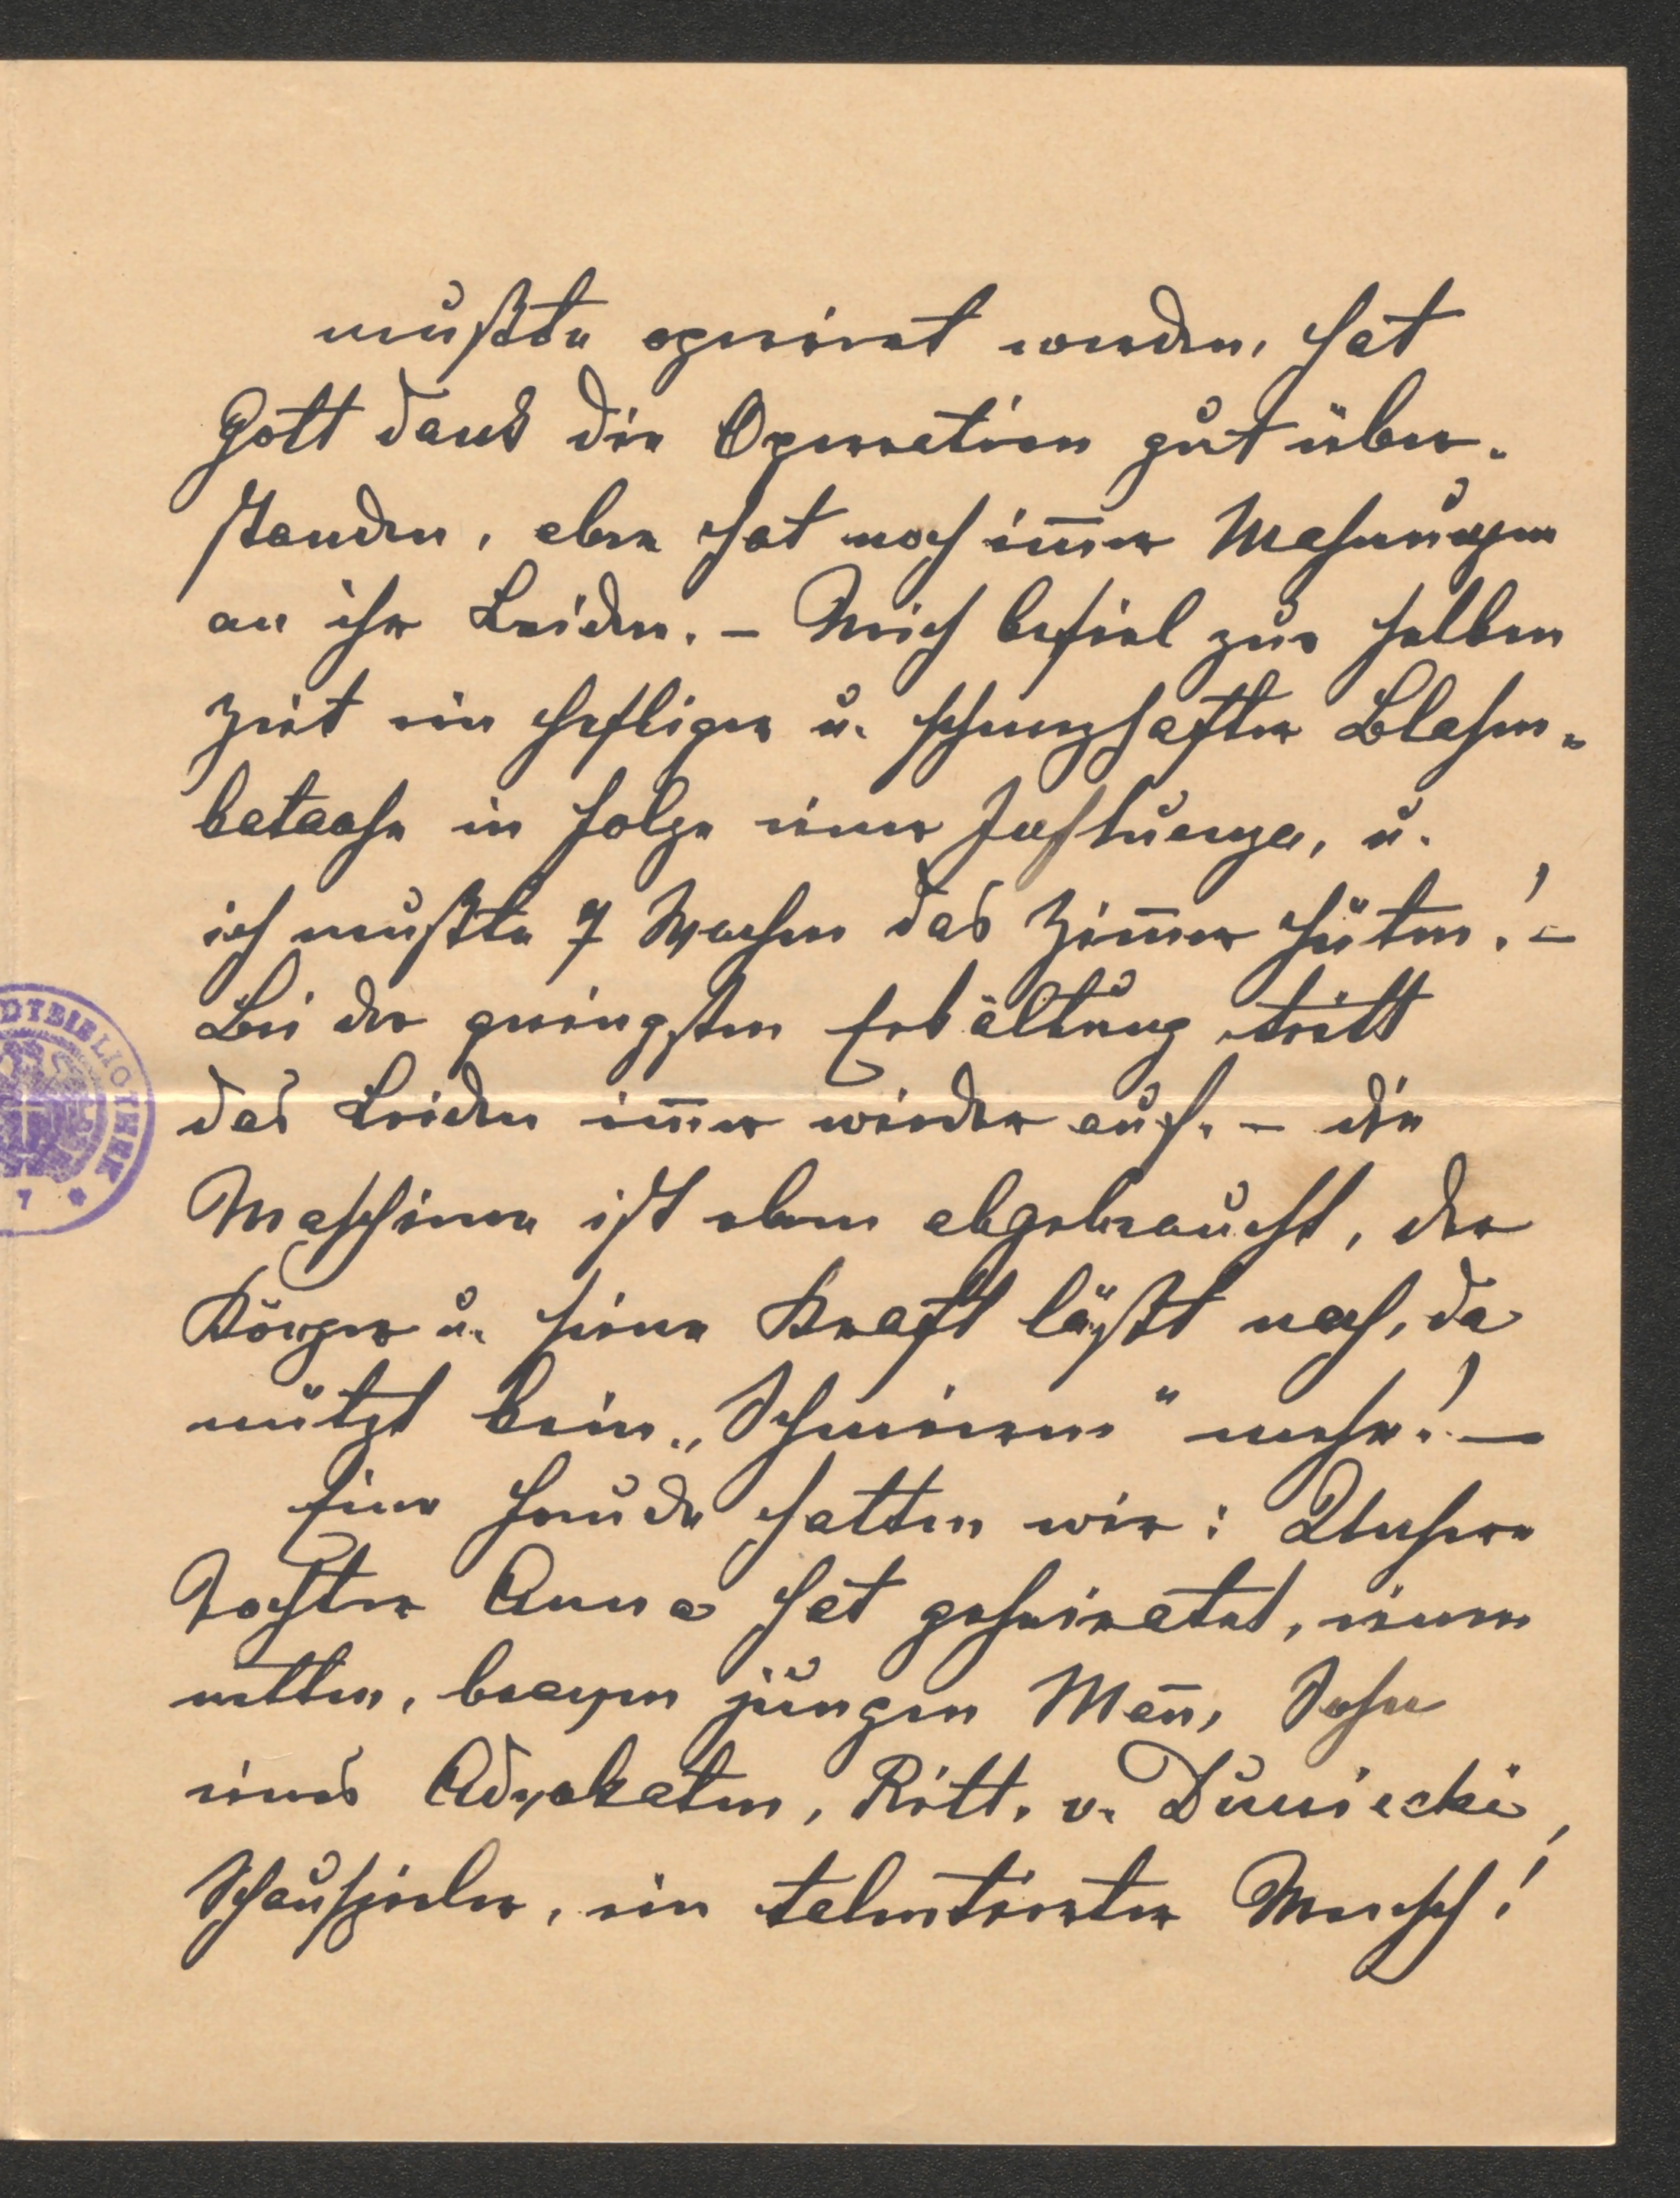 mußte operirat werden, hat
Gott dank die Operation gut über-
standen, aber hat noch im̅er Mahnungen
an ihr Leiden. – Mich befiel zur selben
Zeit ein heftiger u. schmerzhafter Blasen-
katarh in Folge einer Influenza, u.
ich mußte 7 Wochen das Zim̅er hüten! –
Bei der geringsten Erkältung tritt
das Leiden im̅er wieder auf. – die
Maschiene ist eben abgebraucht, der
Körper u. seine Kraft läßt nach, da
nützt kein „Schmieren" mehr! –
Eine Freude hatten wir: Unsere
Tochter Anna hat geheiratet, einen
netten, braven jungen Man̅, Sohn
eines Advokaten, Ritt. v. Duniecki,
Schauspieler, ein talentirter Mensch!
DTBIBLIOTHEK
7